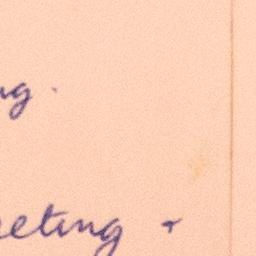 ng.
eeting +